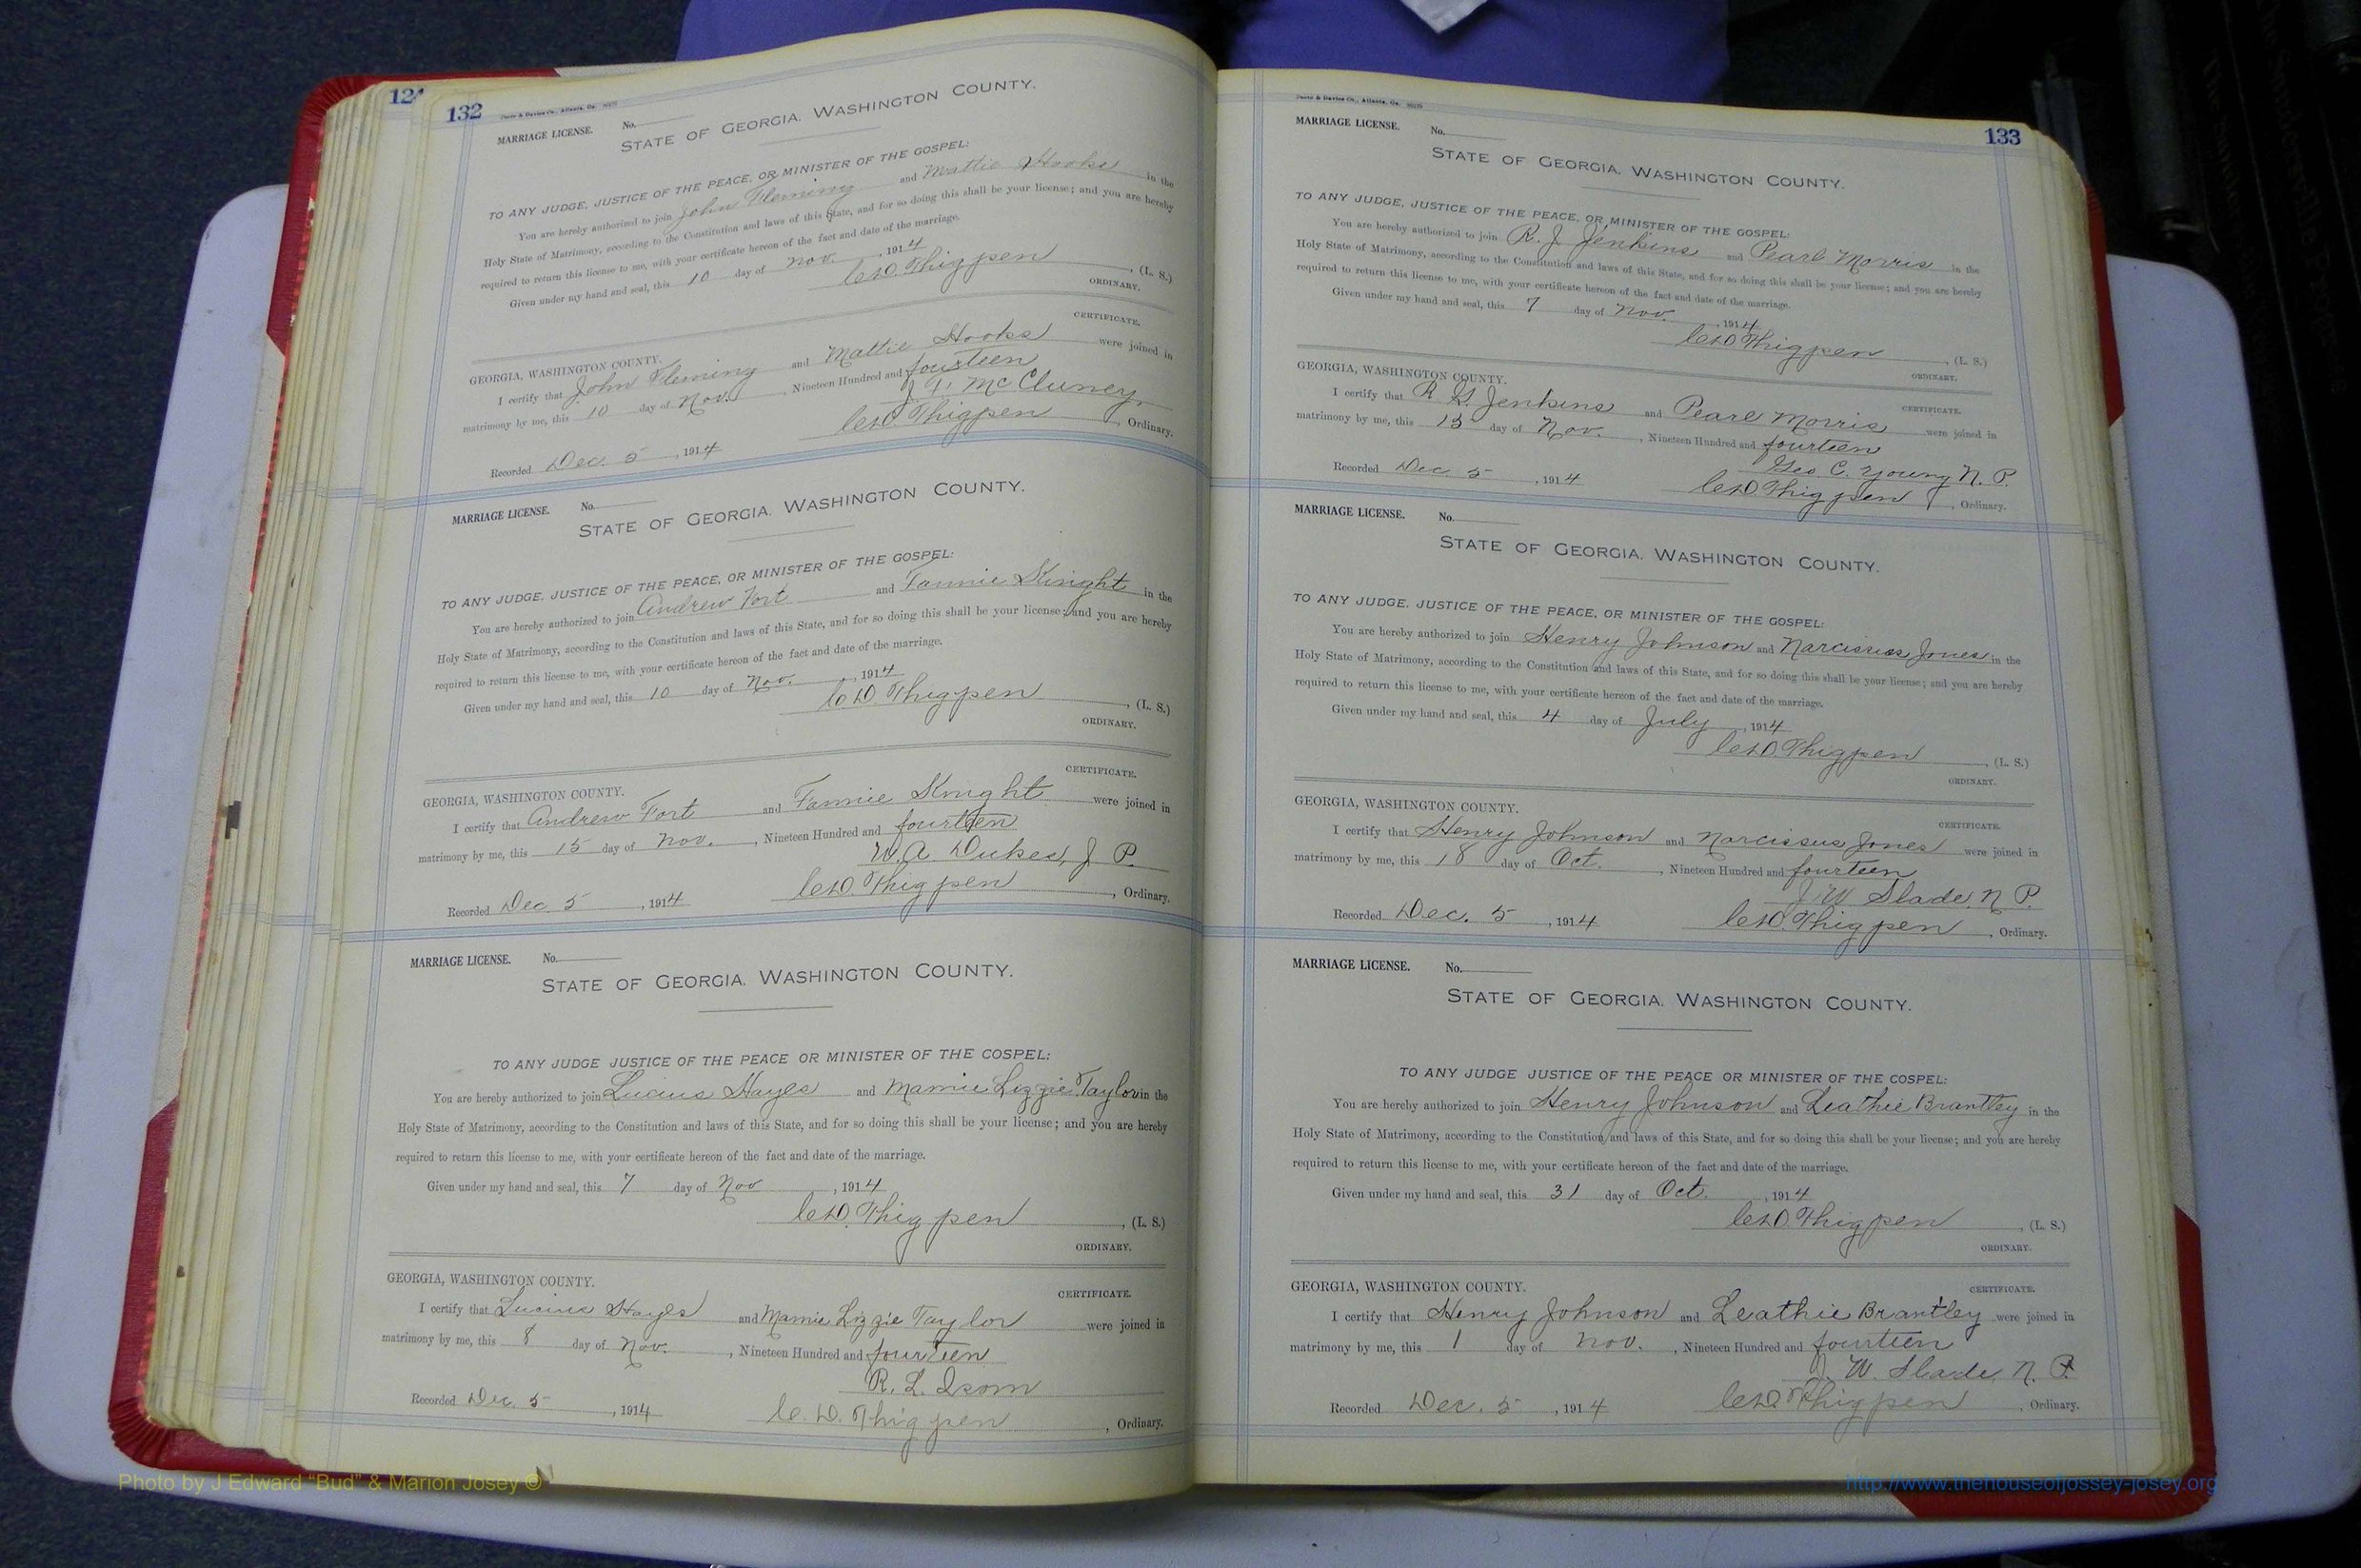 124
132
Foote & Davies Co., Atlanta, Ga.
MARRIAGE LICENSE. No.
STATE OF GEORGIA, WASHINGTON COUNTY.
TO ANY JUDGE, JUSTICE OF THE PEACE, OR MINISTER OF THE GOSPEL:
You are hereby authorized to join John Fleming and Mattie Hooks in the
Holy State of Matrimony, according to the Constitution and laws of this State, and for so doing this shall be your license; and you are hereby
required to return this license to me, with your certificate hereon of the fact and date of the marriage.
Given under my hand and seal, this 10 day of Nov. , 1914
C. D. Thigpen , (L. S.)
ORDINARY.
CERTIFICATE.
GEORGIA, WASHINGTON COUNTY.
I certify that John Fleming and Mattie Hooks were joined in
matrimony by me, this 10 day of Nov. , Nineteen Hundred and fourteen
McCluney
Recorded Dec. 5 , 1914 C. D. Thigpen , Ordinary.
MARRIAGE LICENSE. No.
STATE OF GEORGIA, WASHINGTON COUNTY.
TO ANY JUDGE, JUSTICE OF THE PEACE, OR MINISTER OF THE GOSPEL:
You are hereby authorized to join Andrew Fort and Fannie Knight in the
Holy State of Matrimony, according to the Constitution and laws of this State, and for so doing this shall be your license; and you are hereby
required to return this license to me, with your certificate hereon of the fact and date of the marriage.
Given under my hand and seal, this 10 day of Nov. , 1914
C. D. Thigpen , (L. S.)
ORDINARY.
CERTIFICATE.
GEORGIA, WASHINGTON COUNTY.
I certify that Andrew Fort and Fannie Knight were joined in
matrimony by me, this 15 day of Nov. , Nineteen Hundred and fourteen
W. A. Dukes, J P.
Recorded Dec. 5 , 1914 C. D. Thigpen , Ordinary.
MARRIAGE LICENSE. No.
STATE OF GEORGIA, WASHINGTON COUNTY.
TO ANY JUDGE JUSTICE OF THE PEACE OR MINISTER OF THE COSPEL:
You are hereby authorized to join Lucius Hayes and Mamie Lizzie Taylor in the
Holy State of Matrimony, according to the Constitution and laws of this State, and for so doing this shall be your license; and you are hereby
required to return this license to me, with your certificate hereon of the fact and date of the marriage.
Given under my hand and seal, this 7 day of Nov , 1914
C. D. Thigpen , (L. S.)
ORDINARY.
GEORGIA, WASHINGTON COUNTY.
CERTIFICATE.
I certify that Lucius Hayes and Mamie Lizzie Taylor were joined in
matrimony by me, this 8 day of Nov. , Nineteen Hundred and fourteen
R. L. Isom
Recorded Dec. 5 , 1914 C. D. Thigpen , Ordinary.
133
Foote & Davies Co., Atlanta, Ga.
MARRIAGE LICENSE. No.
STATE OF GEORGIA, WASHINGTON COUNTY.
TO ANY JUDGE, JUSTICE OF THE PEACE, OR MINISTER OF THE GOSPEL:
You are hereby authorized to join R. J. Jenkins and Pearl Morris in the
Holy State of Matrimony, according to the Constitution and laws of this State, and for so doing this shall be your license; and you are hereby
required to return this license to me, with your certificate hereon of the fact and date of the marriage.
Given under my hand and seal, this 7 day of Nov. , 1914
C. D. Thigpen , (L. S.)
ORDINARY.
GEORGIA, WASHINGTON COUNTY.
CERTIFICATE.
I certify that R Jenkins and Pearl Morris were joined in
matrimony by me, this 15 day of Nov. , Nineteen Hundred and fourteen
Geo C. Young N. P.
Recorded Dec. 5 , 1914 C. D. Thigpen , Ordinary.
MARRIAGE LICENSE. No.
STATE OF GEORGIA, WASHINGTON COUNTY.
TO ANY JUDGE, JUSTICE OF THE PEACE, OR MINISTER OF THE GOSPEL:
You are hereby authorized to join Henry Johnson and Narcissus Jones in the
Holy State of Matrimony, according to the Constitution and laws of this State, and for so doing this shall be your license; and you are hereby
required to return this license to me, with your certificate hereon of the fact and date of the marriage.
Given under my hand and seal, this 4 day of July , 1914
C. D. Thigpen , (L. S.)
ORDINARY.
GEORGIA, WASHINGTON COUNTY.
CERTIFICATE.
I certify that Henry Johnson and Narcissus Jones were joined in
matrimony by me, this 18 day of Oct. , Nineteen Hundred and fourteen
J W Slade, N P.
Recorded Dec. 5 , 1914 C. D. Thigpen , Ordinary.
MARRIAGE LICENSE. No.
STATE OF GEORGIA, WASHINGTON COUNTY.
TO ANY JUDGE JUSTICE OF THE PEACE OR MINISTER OF THE COSPEL:
You are hereby authorized to join Henry Johnson and Leathie Brantley in the
Holy State of Matrimony, according to the Constitution and laws of this State, and for so doing this shall be your license; and you are hereby
required to return this license to me, with your certificate hereon of the fact and date of the marriage.
Given under my hand and seal, this 31 day of Oct. , 1914
C. D. Thigpen , (L. S.)
ORDINARY.
GEORGIA, WASHINGTON COUNTY.
CERTIFICATE.
I certify that Henry Johnson and Leathie Brantley were joined in
matrimony by me, this 1 day of Nov. , Nineteen Hundred and fourteen
J. W. Slade, N. P.
Recorded Dec. 5 , 1914 C. D. Thigpen , Ordinary.
Photo by J Edward “Bud” & Marion Josey ©
http://www.thehouseofjossey-josey.org